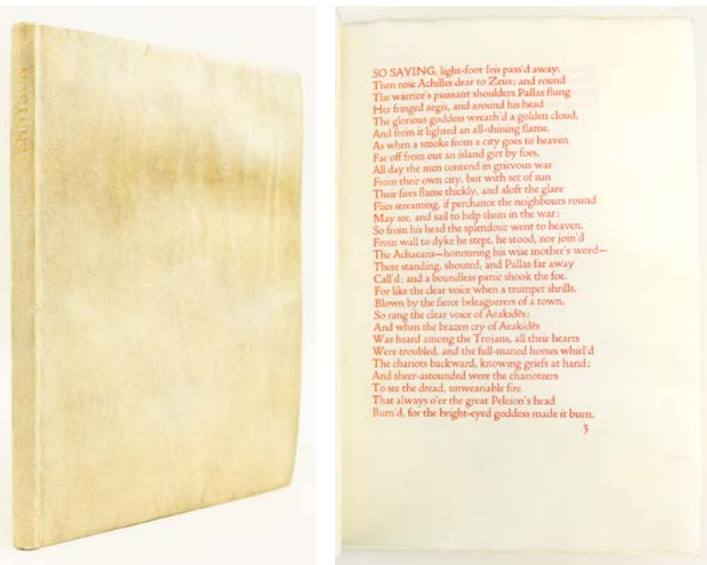 TENNYSON
SO SAYING, light-foot Iris pass'd away.
Then rose Achilles dear to Zeus; and round
The warrior's puissant shoulders Pallas flung
Her fringed aegis, and around his head
The glorious goddess wreath'd a golden cloud,
And from it lighted an all-shining flame.
As when a smoke from a city goes to heaven
Far off from out an island girt by foes,
All day the men contend in grievous war
From their own city, but with set of sun
Their fires flame thickly, and aloft the glare
Flies streaming, if perchance the neighbours round
May see, and sail to help them in the war;
So from his head the splendour went to heaven.
From wall to dyke he stept, he stood, nor join'd
The Achaeans—honouring his wise mother's word—
There standing, shouted, and Pallas far away
Call'd; and a boundless panic shook the foe.
For like the clear voice when a trumpet shrills,
Blown by the fierce beleaguerers of a town,
So rang the clear voice of Aeakidês;
And when the brazen cry of Aeakidês
Was heard among the Trojans, all their hearts
Were troubled, and the full-maned horses whirl'd
The chariots backward, knowing griefs at hand;
And sheer-astounded were the charioteers
To see the dread, unweariable fire
That always o'er the great Peleion's head
Burn'd, for the bright-eyed goddess made it burn.
5